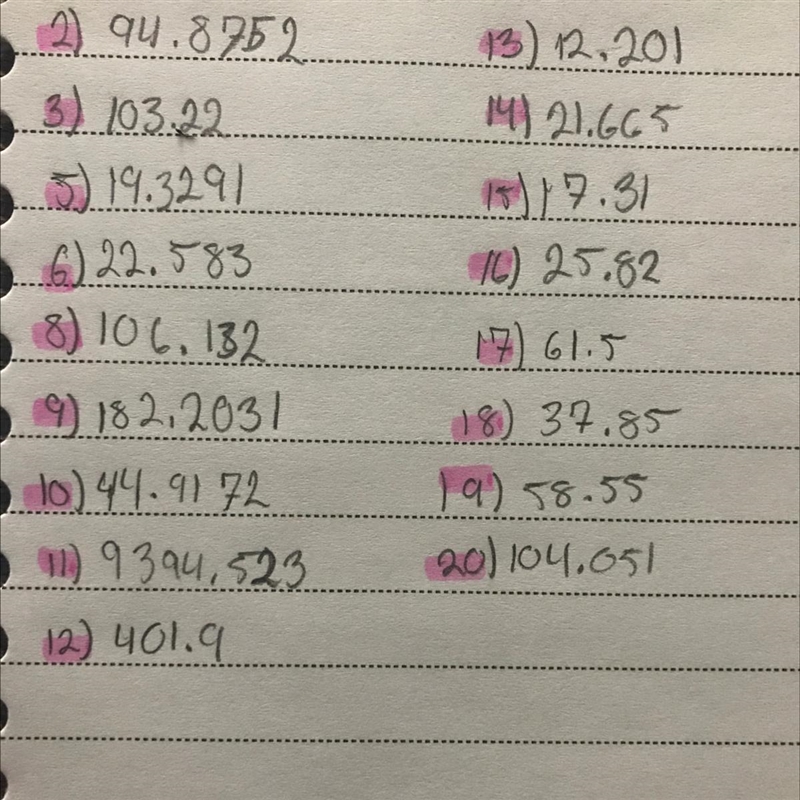 2) 94.8752
3) 103.22
5) 19.3291
6) 22.583
8) 106.132
9) 182.2031
10) 44.9172
11) 9394.523
12) 401.9
13) 12.201
14) 21.665
15) 17.31
16) 25.82
17) 61.5
18) 37.85
19) 58.55
20) 104.051